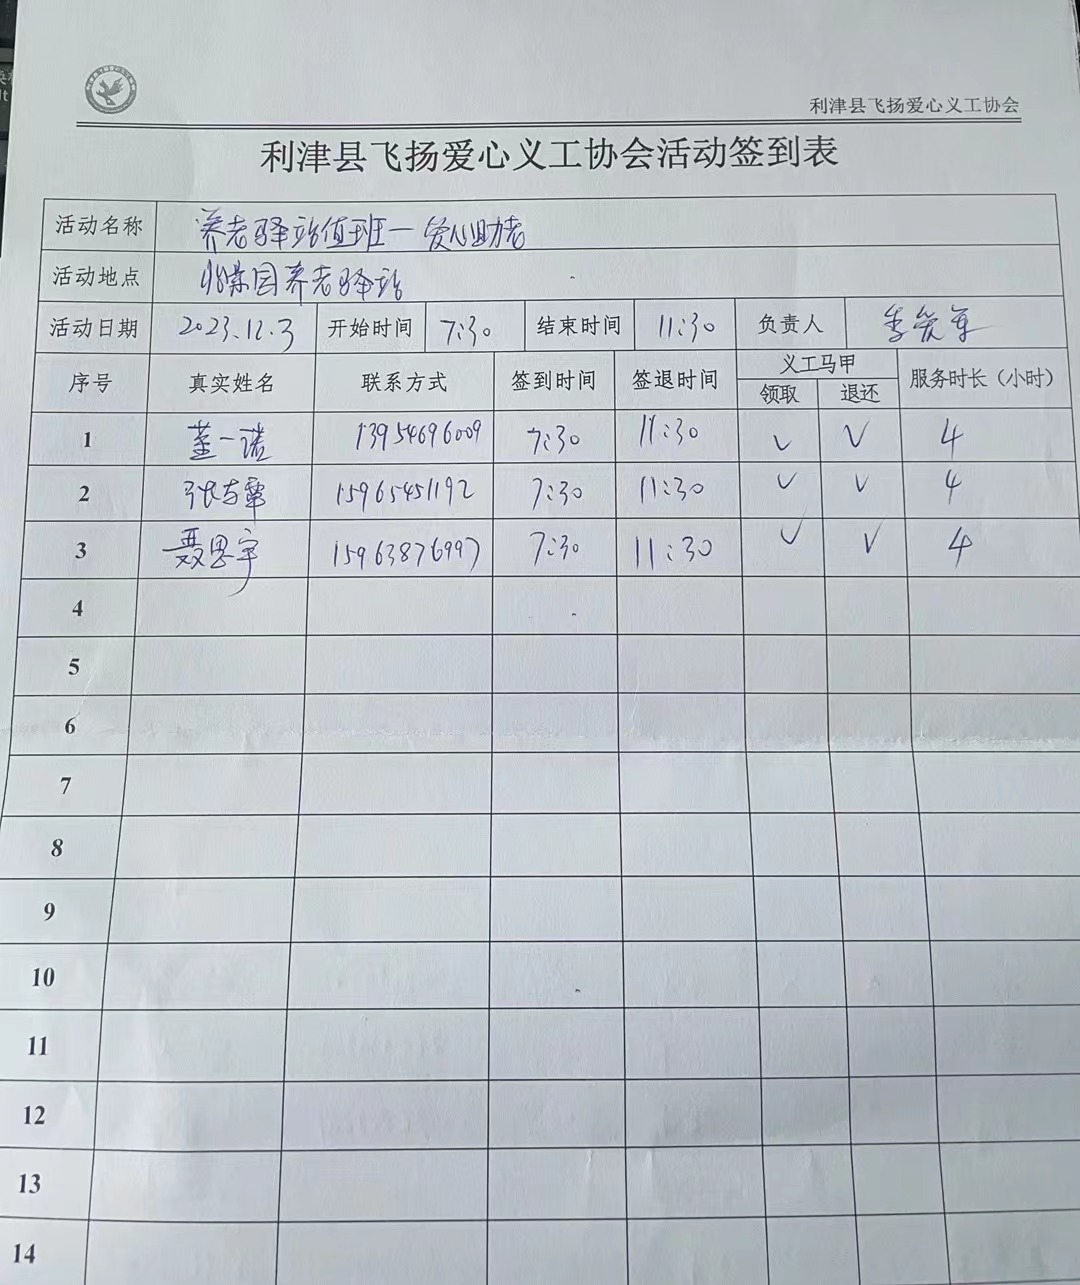 利津县飞扬爱心义工协会
利津县飞扬爱心义工协会活动签到表
活动名称 养老驿站值班一爱心助老
活动地点 怡景园养老驿站
活动日期 2023.12.3 开始时间 7:30 结束时间 11:30 负责人 李
序号 真实姓名 联系方式 签到时间 签退时间 义工马甲 服务时长（小时）
领取 退还
1 一诺 13954696009 7:30 11:30 ✓ ✓ 4
2 张 15965451192 7:30 11:30 ✓ ✓ 4
3 聂思宇 15963876997 7:30 11:30 ✓ ✓ 4
4
5
6
7
8
9
10
11
12
13
14